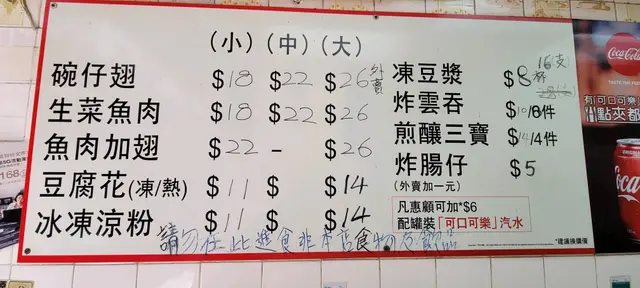 (小) (中) (大)
碗仔翅 $18 $22 $26 外賣
生菜魚肉 $18 $22 $26
魚肉加翅 $22 - $26
豆腐花(凍/熱) $11 $ $14
冰凍涼粉 $11 $ $14
凍豆漿 $8杯 16支
炸雲吞 $10/8件
煎釀三寶 $14/4件
炸腸仔 $5
(外賣加一元)
凡惠顧可加*$6
配罐裝「可口可樂」汽水
*建議換購價
請勿在此進食非本店食物及飲品
Coca-Cola
有「可口可樂」
點夾都
Coca
168